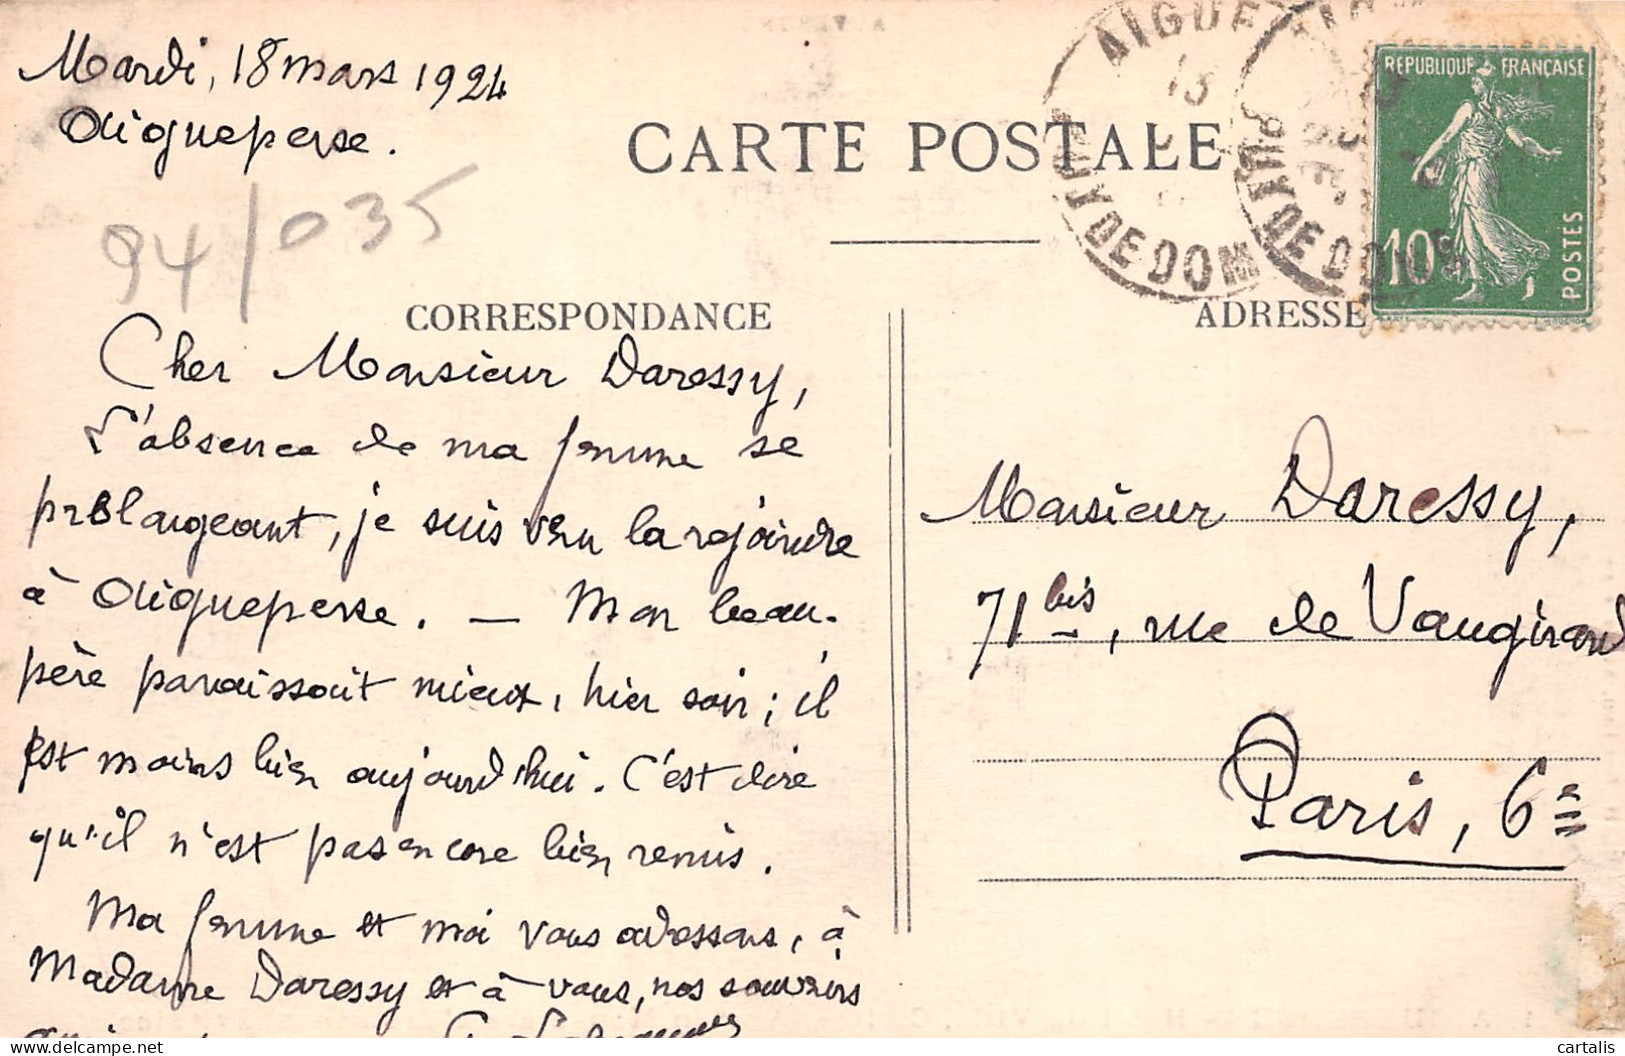 Mardi, 18 mars 1924
Aigueperse.
94/035
CARTE POSTALE
AIGUE
PUY DE DOME
PUY DE DOME
REPUBLIQUE FRANÇAISE
10c
POSTES
CORRESPONDANCE
ADRESSE
Cher Monsieur Daressy,
L'absence de ma femme se
prolongeant, je suis venu la rejoindre
à Aigueperse. — Mon beau-
père paraissait mieux, hier soir ; il
est moins bien aujourd'hui. C'est dire
qu'il n'est pas encore bien remis.
Ma femme et moi vous adressons, à
Madame Daressy et à vous, nos souvenirs
Monsieur Daressy,
71 bis, rue de Vaugirard
Paris, 6e
cartalis